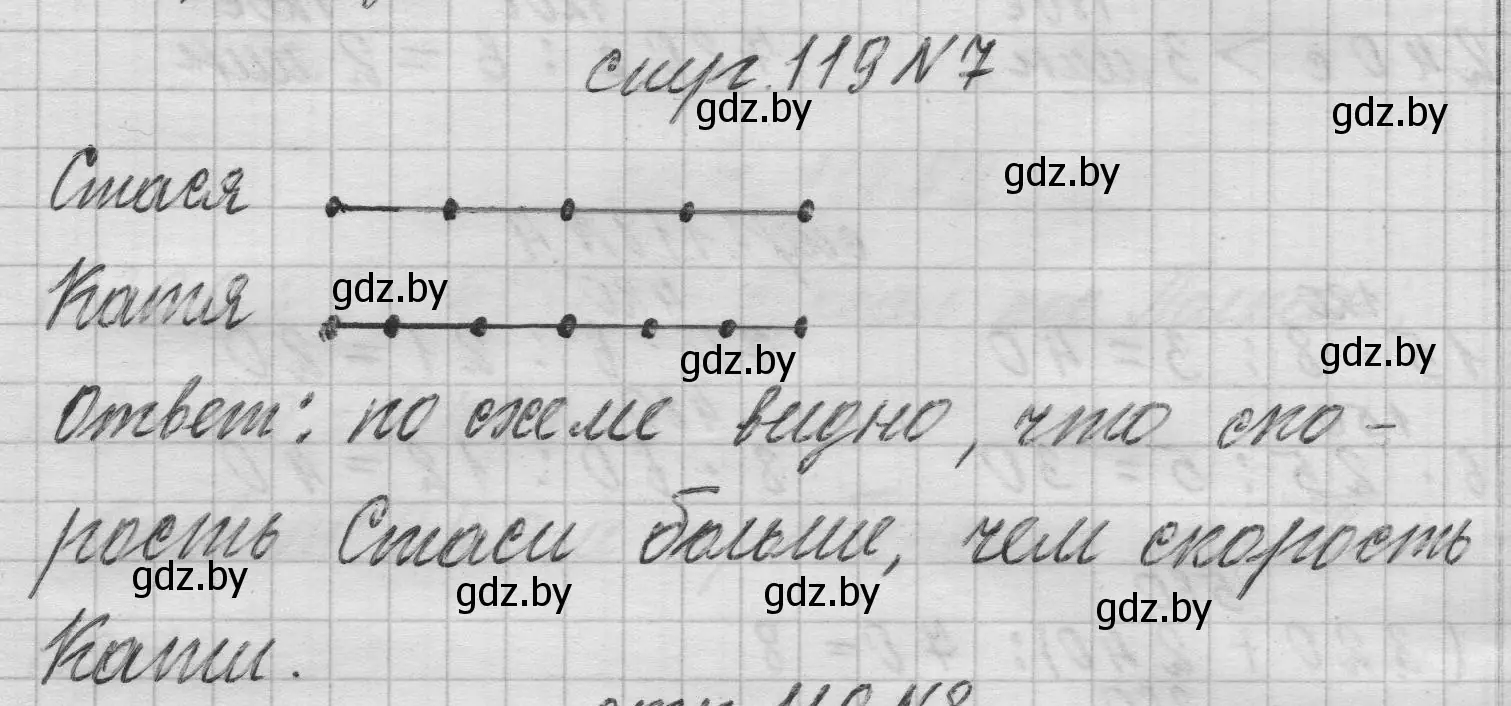 стр. 119 N 7
gdz.by
gdz.by
gdz.by
Стася
Катя
gdz.by
gdz.by
gdz.by
Ответ: по схеме видно, что ско-
рость Стаси больше, чем скорость
gdz.by
gdz.by
gdz.by
gdz.by
Кати.